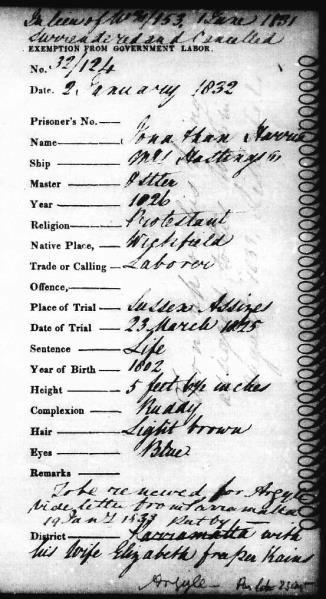 In lieu of No 31/153, 1 June 1831
Surrendered and Cancelled
EXEMPTION FROM GOVERNMENT LABOR.
No. 32/124
Date. 2 January 1832
Prisoner's No.
Name Jonathan Harris
Ship Mqs Hastings
Master Ostler
Year 1826
Religion Protestant
Native Place, Wichfield
Trade or Calling Laborer
Offence,
Place of Trial Sussex Assizes
Date of Trial 23 March 1825
Sentence Life
Year of Birth 1802
Height 5 feet inches
Complexion Ruddy
Hair Light brown
Eyes Blue
Remarks
To be renewed for Argyle
vide letter from Parramatta
19 Jany 1833
District Parramatta with
his Wife Elizabeth
Argyle